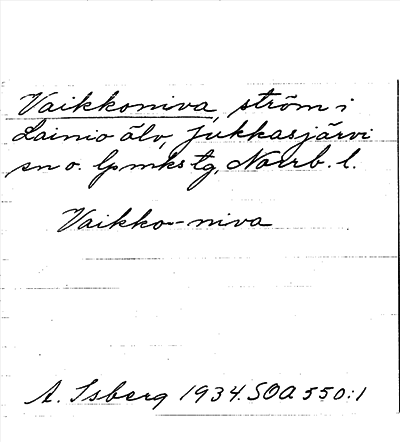 Vaikkoniva, ström i
Lainio älv, Jukkasjärvi
sn o. lpmks tg, Norrb. l.
Vaikko-niva
A. Isberg 1934. SOA 550:1